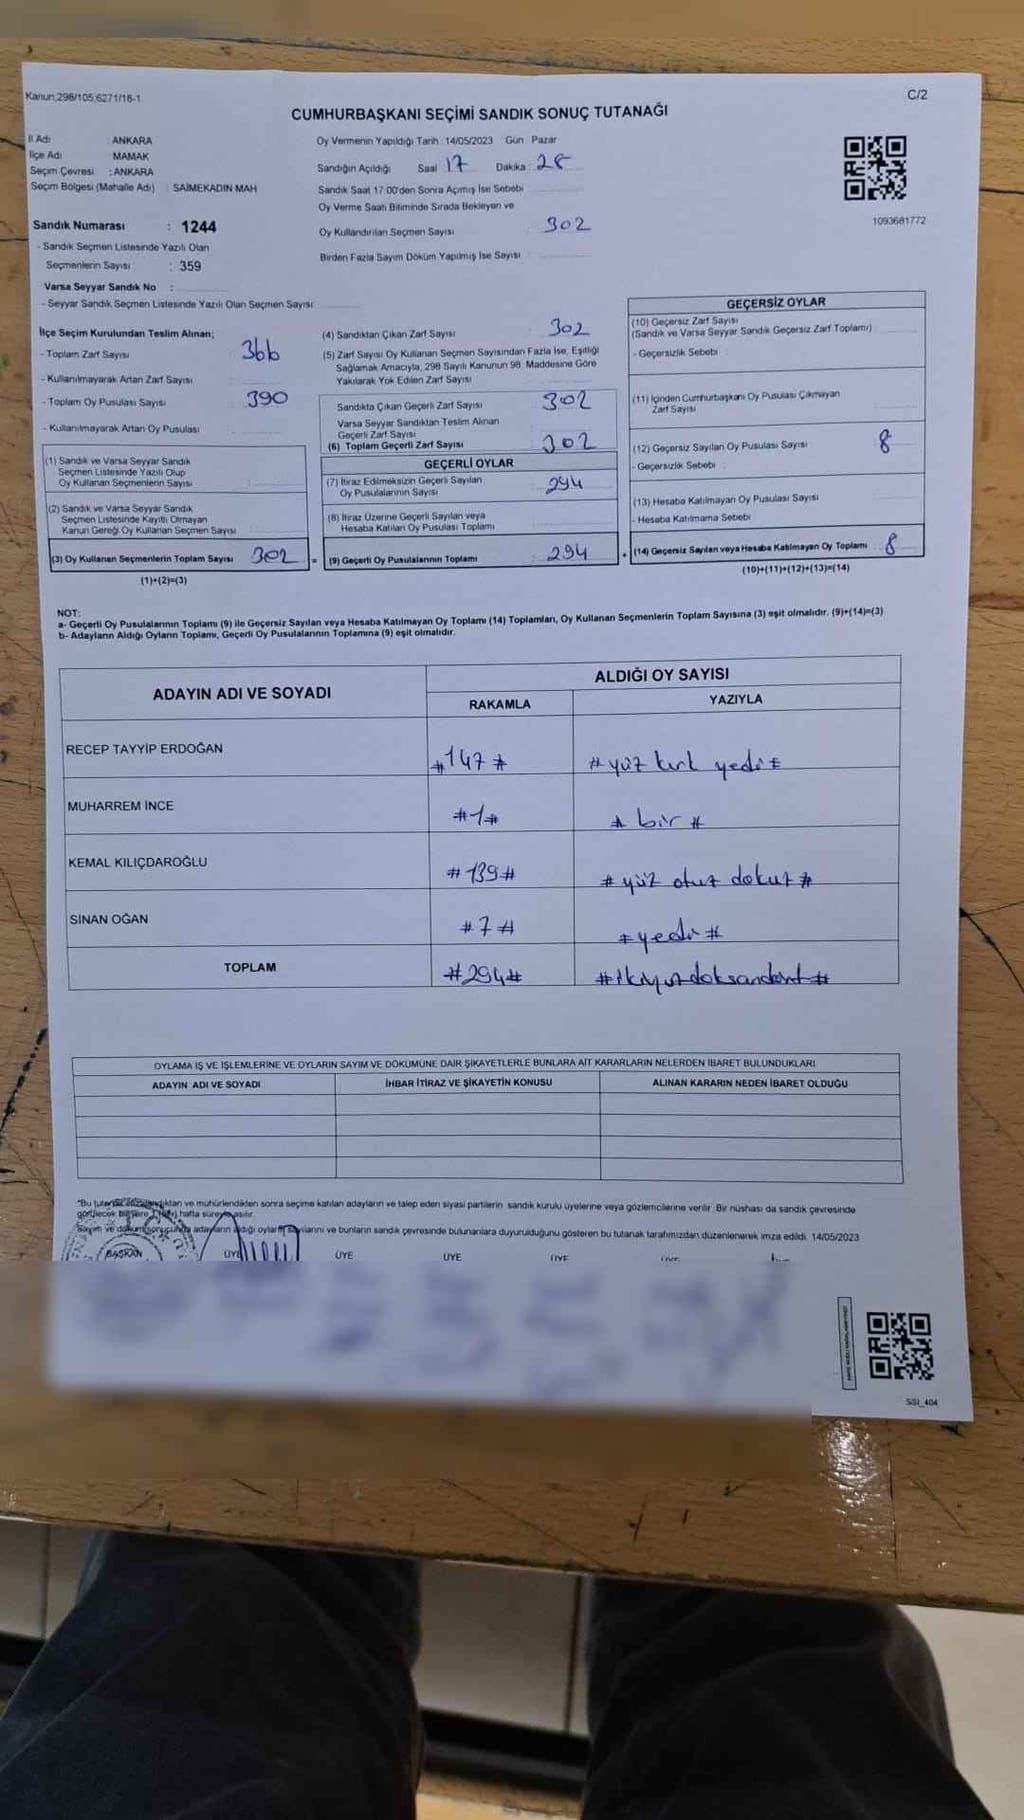 Kanun;298/105;6271/16-1
C/2
CUMHURBAŞKANI SEÇİMİ SANDIK SONUÇ TUTANAĞI
İl Adı : ANKARA
İlçe Adı : MAMAK
Seçim Çevresi : ANKARA
Seçim Bölgesi (Mahalle Adı) : SAİMEKADIN MAH
Sandık Numarası : 1244
- Sandık Seçmen Listesinde Yazılı Olan
Seçmenlerin Sayısı : 359
Varsa Seyyar Sandık No :
- Seyyar Sandık Seçmen Listesinde Yazılı Olan Seçmen Sayısı
Oy Vermenin Yapıldığı Tarih : 14/05/2023 Gün : Pazar
Sandığın Açıldığı Saat 17 Dakika : 28
Sandık Saat 17:00'den Sonra Açılmış İse Sebebi
Oy Verme Saati Bitiminde Sırada Bekleyen ve
Oy Kullandırılan Seçmen Sayısı : 302
Birden Fazla Sayım Döküm Yapılmış İse Sayısı
1093681772
İlçe Seçim Kurulundan Teslim Alınan;
- Toplam Zarf Sayısı 366
- Kullanılmayarak Artan Zarf Sayısı
- Toplam Oy Pusulası Sayısı 390
- Kullanılmayarak Artan Oy Pusulası
(1) Sandık ve Varsa Seyyar Sandık
Seçmen Listesinde Yazılı Olup
Oy Kullanan Seçmenlerin Sayısı
(2) Sandık ve Varsa Seyyar Sandık
Seçmen Listesinde Kayıtlı Olmayan
Kanun Gereği Oy Kullanan Seçmen Sayısı
(3) Oy Kullanan Seçmenlerin Toplam Sayısı 302 =
(1)+(2)=(3)
(4) Sandıktan Çıkan Zarf Sayısı 302
(5) Zarf Sayısı Oy Kullanan Seçmen Sayısından Fazla İse, Eşitliği
Sağlamak Amacıyla, 298 Sayılı Kanunun 98. Maddesine Göre
Yakılarak Yok Edilen Zarf Sayısı
Sandıkta Çıkan Geçerli Zarf Sayısı 302
Varsa Seyyar Sandıktan Teslim Alınan
Geçerli Zarf Sayısı
(6) Toplam Geçerli Zarf Sayısı 302
GEÇERLİ OYLAR
(7) İtiraz Edilmeksizin Geçerli Sayılan
Oy Pusulalarının Sayısı 294
(8) İtiraz Üzerine Geçerli Sayılan veya
Hesaba Katılan Oy Pusulası Toplamı
(9) Geçerli Oy Pusulalarının Toplamı : 294 +
GEÇERSİZ OYLAR
(10) Geçersiz Zarf Sayısı
(Sandık ve Varsa Seyyar Sandık Geçersiz Zarf Toplamı)
- Geçersizlik Sebebi
(11) İçinden Cumhurbaşkanı Oy Pusulası Çıkmayan
Zarf Sayısı
(12) Geçersiz Sayılan Oy Pusulası Sayısı 8
- Geçersizlik Sebebi
(13) Hesaba Katılmayan Oy Pusulası Sayısı
- Hesaba Katılmama Sebebi
(14) Geçersiz Sayılan veya Hesaba Katılmayan Oy Toplamı : 8
(10)+(11)+(12)+(13)=(14)
NOT:
a- Geçerli Oy Pusulalarının Toplamı (9) ile Geçersiz Sayılan veya Hesaba Katılmayan Oy Toplamı (14) Toplamları, Oy Kullanan Seçmenlerin Toplam Sayısına (3) eşit olmalıdır. (9)+(14)=(3)
b- Adayların Aldığı Oyların Toplamı, Geçerli Oy Pusulalarının Toplamına (9) eşit olmalıdır.
ADAYIN ADI VE SOYADI ALDIĞI OY SAYISI
RAKAMLA YAZIYLA
RECEP TAYYİP ERDOĞAN #147# #yüz kırk yedi#
MUHARREM İNCE #1# # bir #
KEMAL KILIÇDAROĞLU #139# # yüz otuz dokuz #
SİNAN OĞAN #7# #yedi#
TOPLAM #294# #ikiyüzdoksandört#
OYLAMA İŞ VE İŞLEMLERİNE VE OYLARIN SAYIM VE DÖKÜMÜNE DAİR ŞİKAYETLERLE BUNLARA AİT KARARLARIN NELERDEN İBARET BULUNDUKLARI
ADAYIN ADI VE SOYADI İHBAR İTİRAZ VE ŞİKAYETİN KONUSU ALINAN KARARIN NEDEN İBARET OLDUĞU
*Bu tutanak imzalandıktan ve mühürlendikten sonra seçime katılan adayların ve talep eden siyasi partilerin sandık kurulu üyelerine veya gözlemcilerine verilir. Bir nüshası da sandık çevresinde
görülecek bir yere 1 (bir) hafta süreyle asılır.
Sayım ve döküm sonucunda adayların aldığı oyların sayılarını ve bunların sandık çevresinde bulunanlara duyurulduğunu gösteren bu tutanak tarafımızdan düzenlenerek imza edildi. 14/05/2023
BAŞKAN ÜYE ÜYE ÜYE ÜYE ÜYE
SSI_404